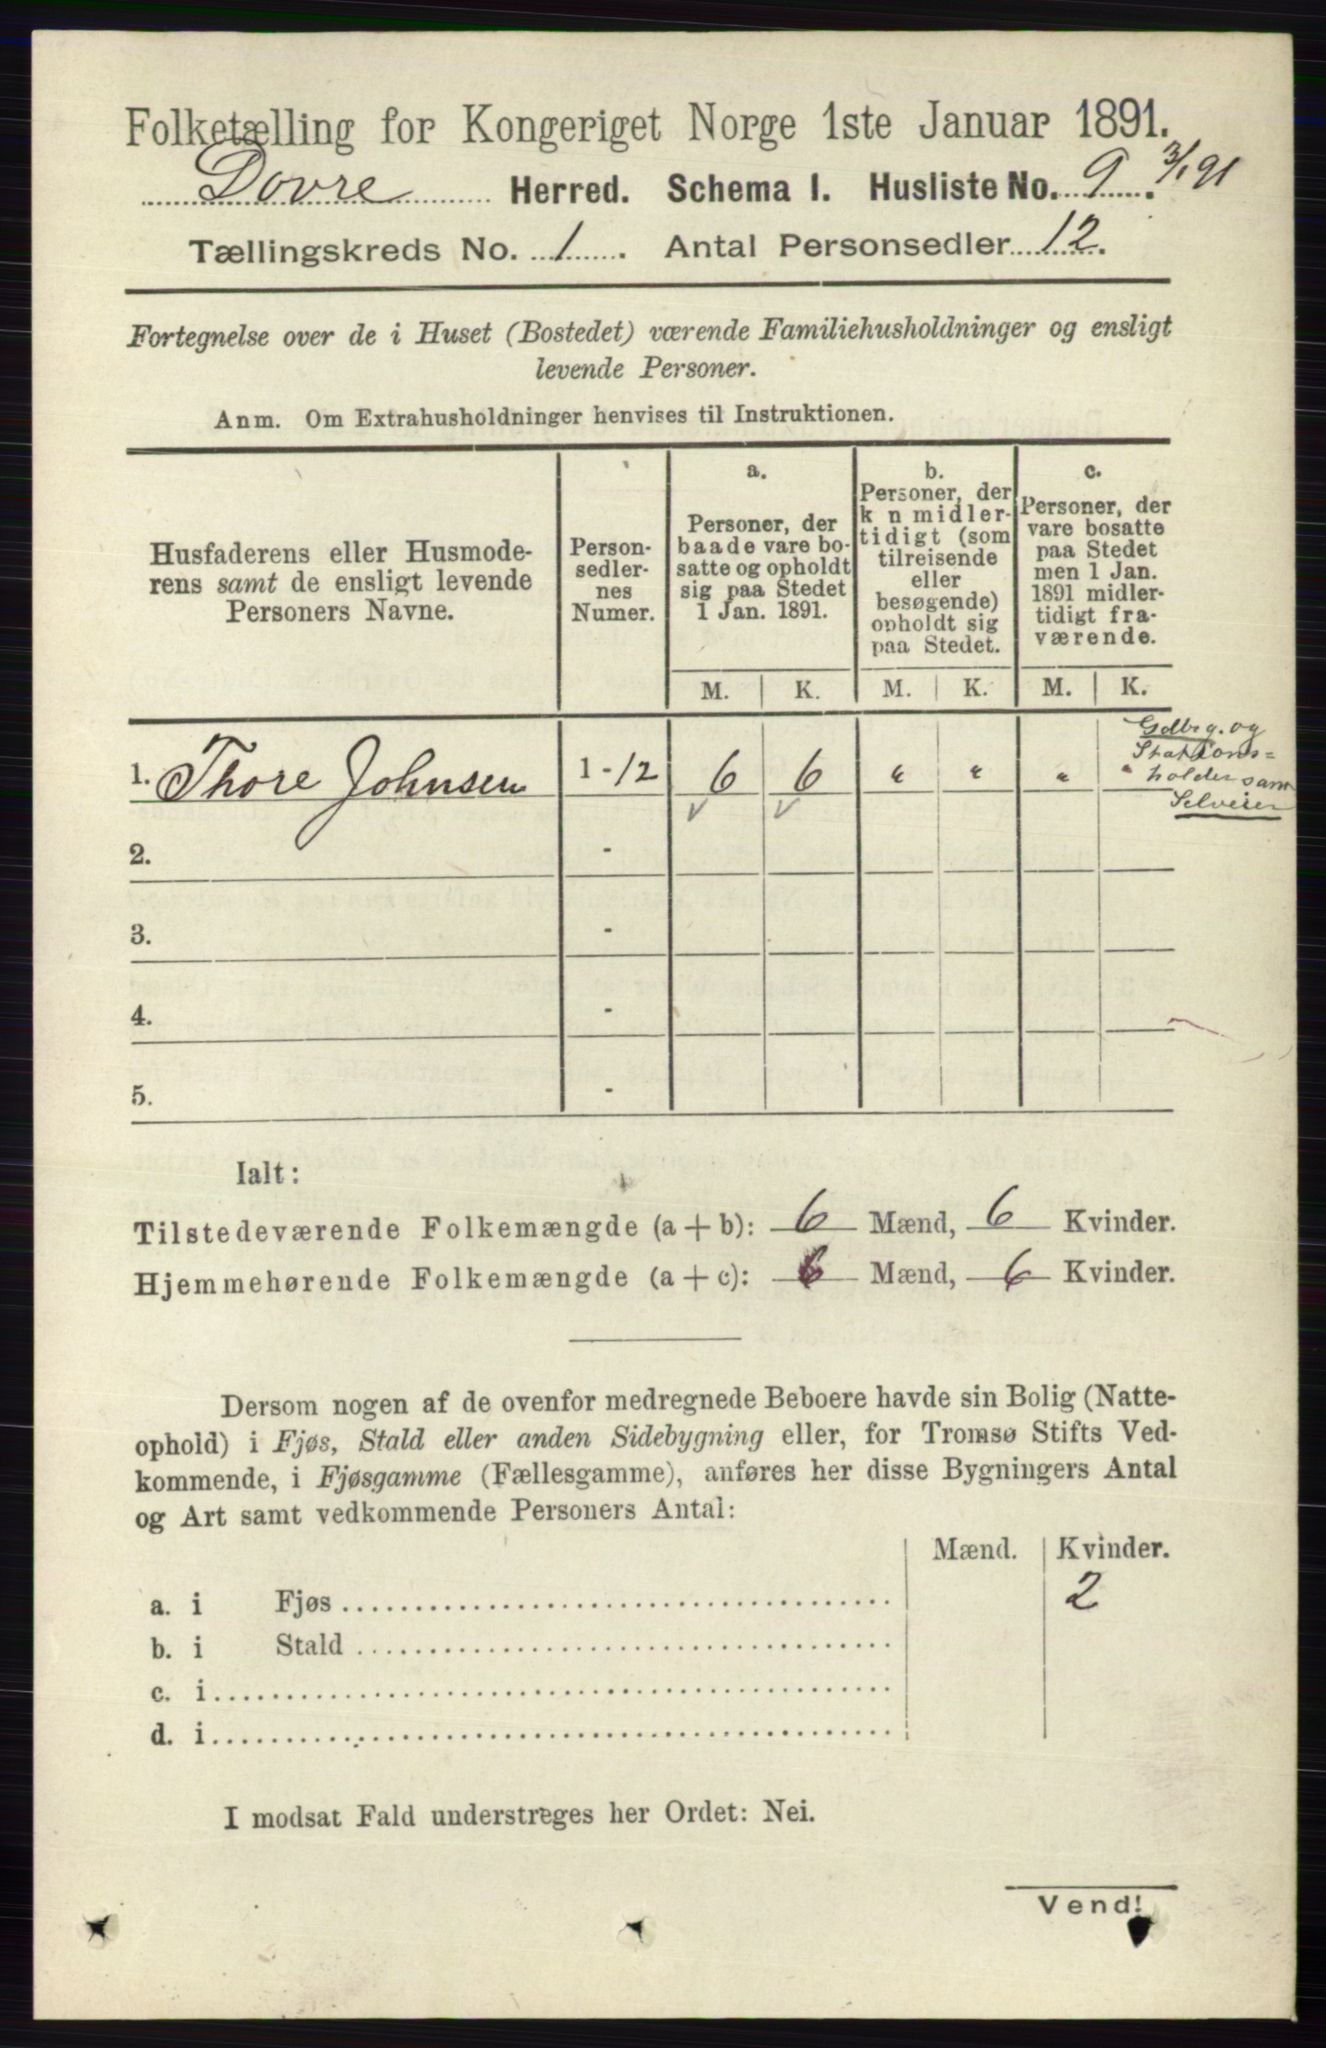 Folketælling for Kongeriget Norge 1ste Januar 1891.
Dovre Herred. Schema I. Husliste No. 9. 3/1 91
Tællingskreds No. 1. Antal Personsedler 12.
Fortegnelse over de i Huset (Bostedet) værende Familiehusholdninger og ensligt
levende Personer.
Anm. Om Extrahusholdninger henvises til Instruktionen.
Husfaderens eller Husmode-
rens samt de ensligt levende
Personers Navne.
Person-
sedler-
nes
Numer.
a.
Personer, der
baade vare bo-
satte og opholdt
sig paa Stedet
1 Jan. 1891.
b.
Personer, der
k n midler-
tidigt (som
tilreisende
eller
besøgende)
opholdt sig
paa Stedet.
c.
Personer, der
vare bosatte
paa Stedet
men 1 Jan.
1891 midler-
tidigt fra-
værende.
M. K. M. K. M. K.
Gdbrg. og
Stations=
holder samt
Selveier
1. Thore Johnsen 1-12 6 6 " " " "
2. -
3. -
4. -
5. -
Ialt:
Tilstedeværende Folkemængde (a + b): 6 Mænd, 6 Kvinder.
Hjemmehørende Folkemængde (a + c): 6 Mænd, 6 Kvinder.
Dersom nogen af de ovenfor medregnede Beboere havde sin Bolig (Natte-
ophold) i Fjøs, Stald eller anden Sidebygning eller, for Tromsø Stifts Ved-
kommende, i Fjøsgamme (Fællesgamme), anføres her disse Bygningers Antal
og Art samt vedkommende Personers Antal:
Mænd. Kvinder.
a. i Fjøs 2
b. i Stald
c. i
d. i
I modsat Fald understreges her Ordet: Nei.
Vend!